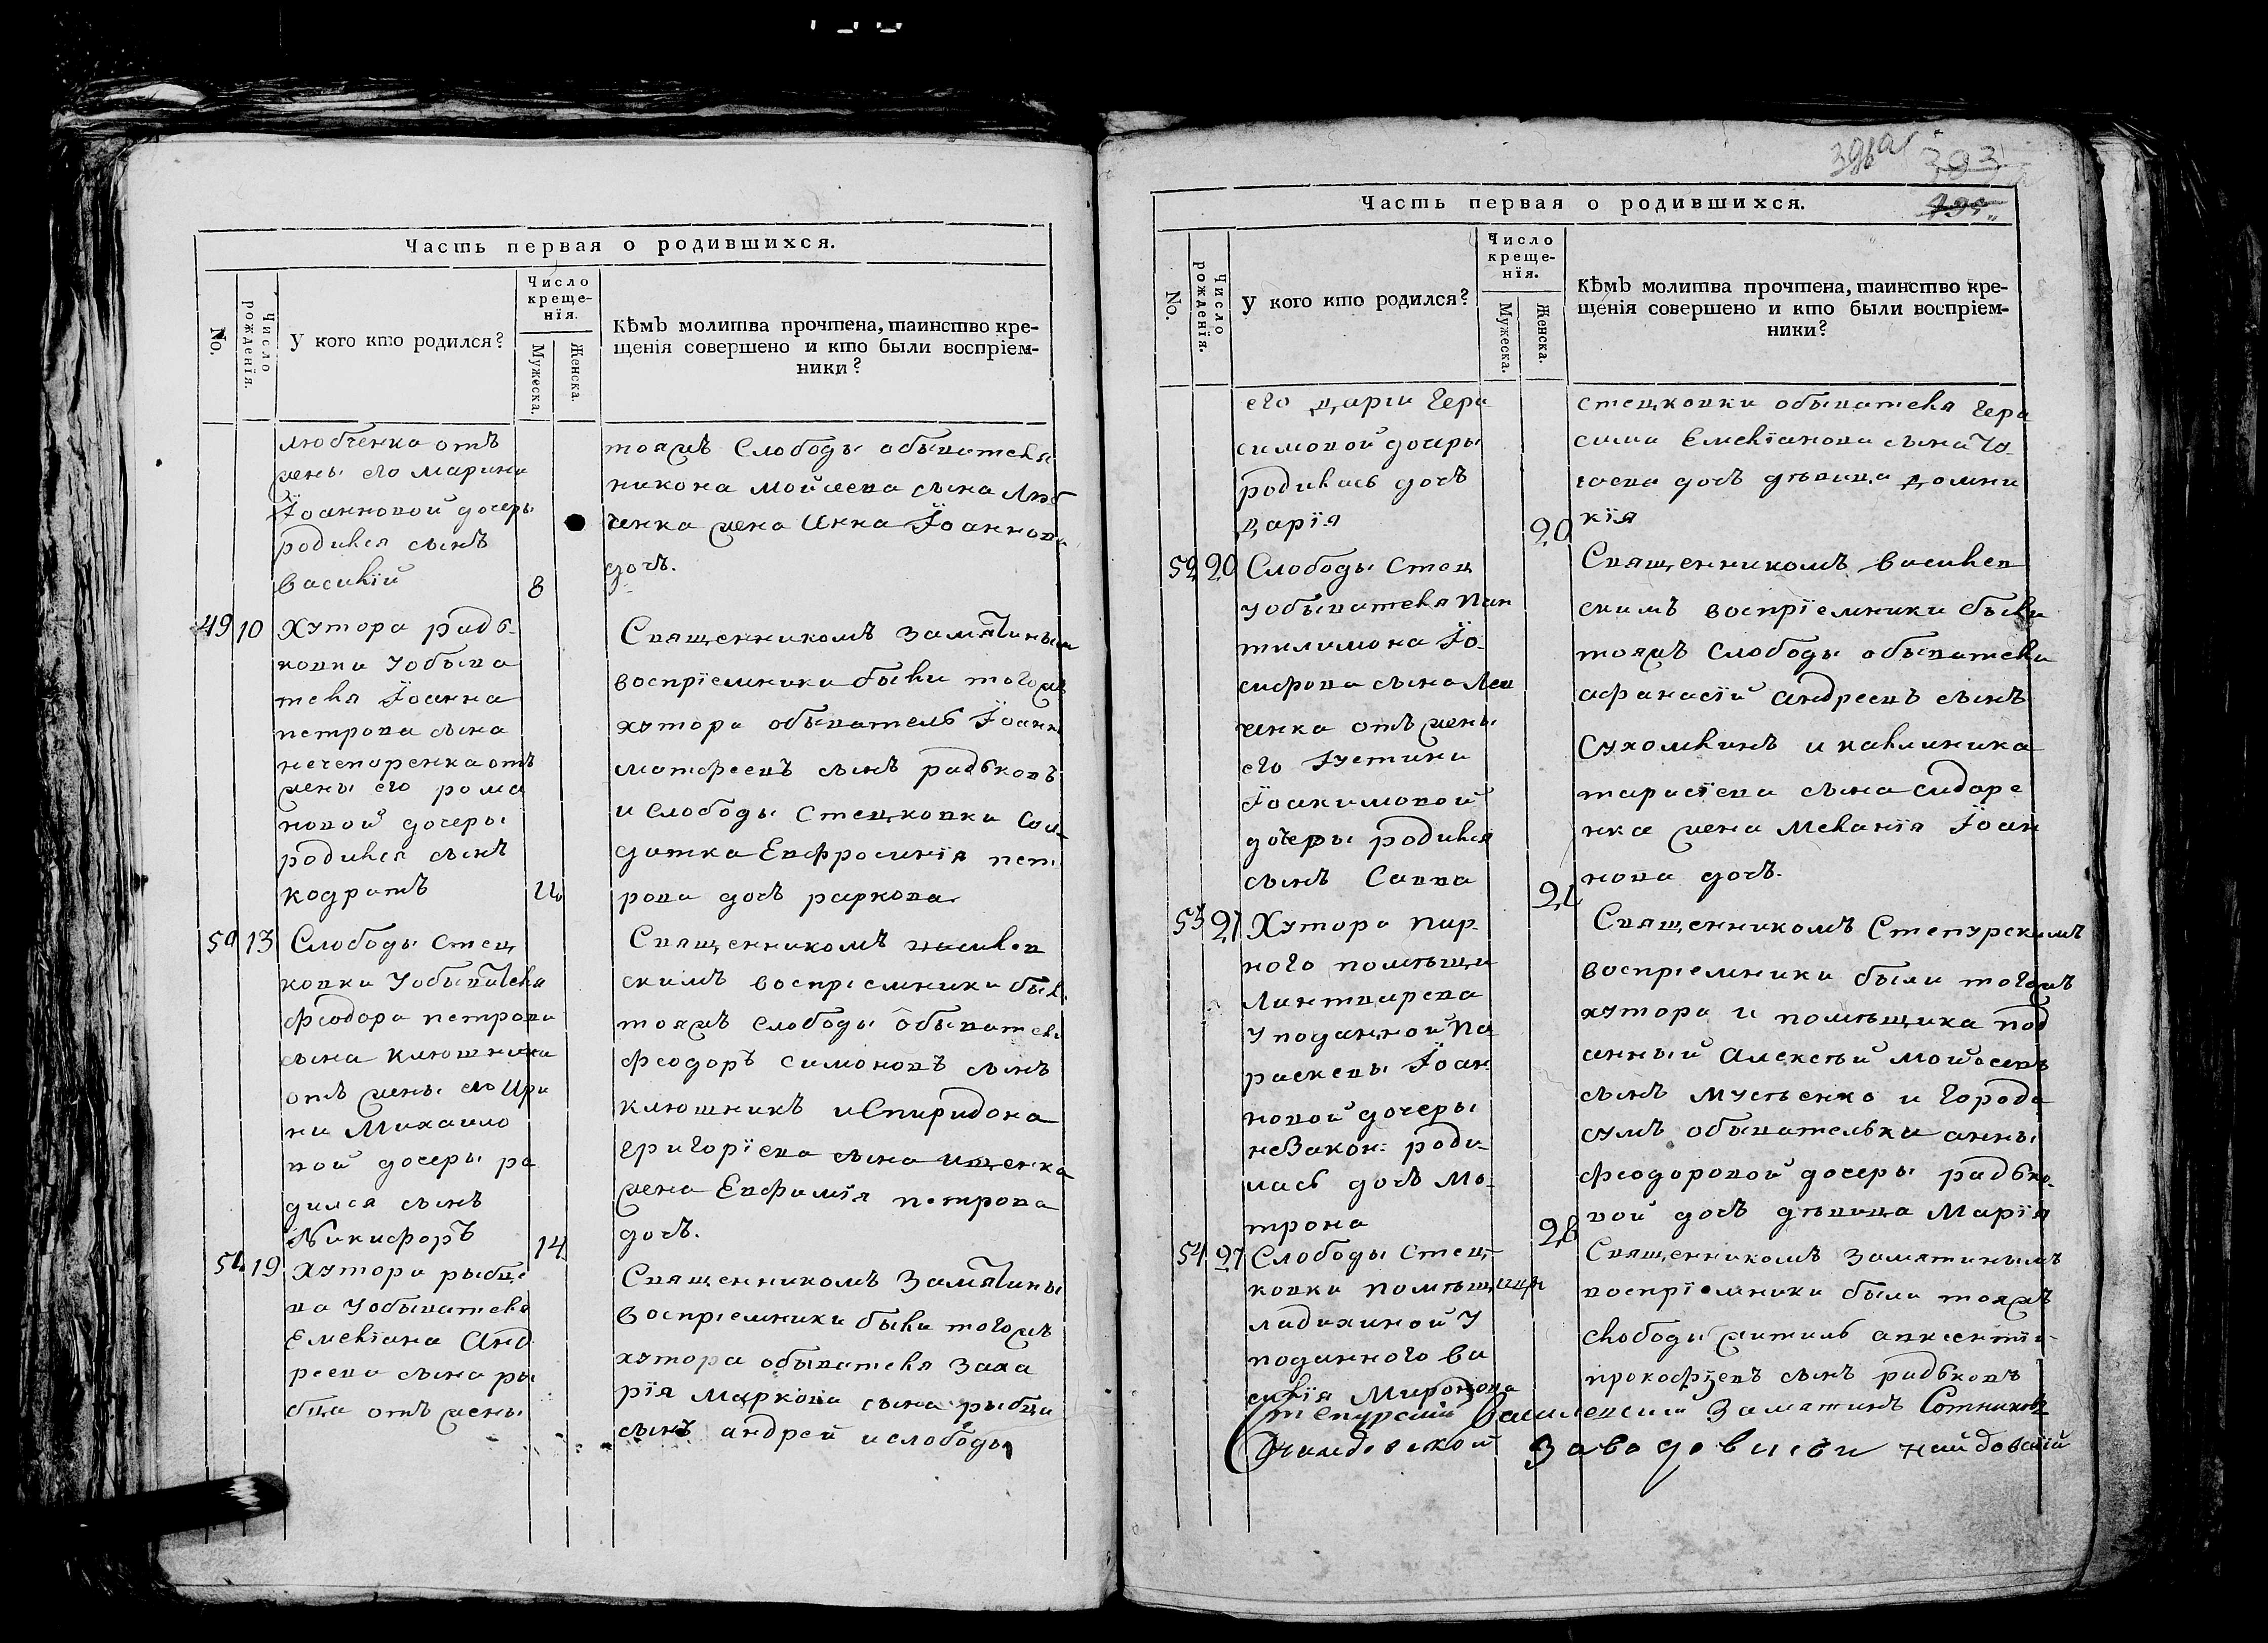 Часть первая о родившихся.
No.
Число рожденїя.
У кого кто родился?
Число креще-
нїя.
Мужеска.
Женска.
Кѣмъ молитва прочтена, таинство кре-
щенія совершено и кто были воспріем-
ники?
любченка отъ
жены его марины
Їоанновой дочеры
родился сынъ
василій
8
тояжъ Слободы обывателя
никона мойсеева сына Люб
ченка жена Анна Їоаннова
дочь.
49 10
Хутора радь-
ковки Уобыва
теля Їоанна
петрова сына
нечепоренка отъ
жены его рома
новой дочеры
родился сынъ
кодратъ
Священникомъ Замятинымъ
воспрїемники были тогожъ
хутора обыватель Їоаннъ
матфеевъ сынъ радьковъ
и слободы Стецковки Сол-
датка Евфросинїя пет-
рова дочь
50 13
Слободы Стец
ковки Уобывателя
феодора петрова
сына ключника
отъ жены его Ири
ны Михаило
вой дочеры ро
дился сынъ
Никифоръ
14
Священникомъ василев
скимъ воспрїемники были
тояжъ слободы обыватель
феодоръ симоновъ сынъ
ключникъ иСпиридона
григорїева сына ищенка
жена Евфимїя петрова
дочь.
51 19
Хутора рыбце
ва Уобывателя
Емелїана Анд
реева сына ры
бца отъ жены
Священникомъ Замятины
воспрїемники были тогожъ
хутора обывателя Заха
рїя Маркова сына рыбца
сынъ андрей ислободы
393
Часть первая о родившихся.
No.
Число рожденїя.
У кого кто родился?
Число креще-
нїя.
Мужеска.
Женска.
Кѣмъ молитва прочтена, таинство кре-
щенія совершено и кто были воспріем-
ники?
его дарїи Гера
симовой дочеры
родилась дочь
дарїя
20
стецковки обывателя Гера
сима Емелїанова сына
дочь дѣвица домни
кїя
52 20
Слободы Стец
Уобывателя Пан
тилимона Їо-
сифова сына Лев
ченка отъ жены
его Іустины
Їоакимовой
дочеры родился
сынъ Савва
21
Священникомъ василев
скимъ воспрїемники были
тояжъ слободы обыватели
афанасїй андреевъ сынъ
Сухомлинъ и каллиника
тарасїева сына сидоре
нка жена Меланїя Їоан
нова дочь.
53 27
Хутора пир-
ного помѣщи
Линтварева
У поданной Па
раскевы Їоан
новой дочеры
неЗакон: роди-
лась дочь Мо-
трона
28
Священникомъ Степурскимъ
воспріемники были тогожъ
хутора и помѣщика под
анный Алексѣй мойсеевъ
сынъ и города
сумъ обывательки анны
феодоровой дочеры радько-
вой дочь дѣвица Марїя
54 27
Слободы Стец-
ковки помѣщицы
ладихиной У
поданного ва
силїя Миронова
Священникомъ Замятинымъ
воспрїемники были тояжъ
слободы житиль авксентїй
прокофїевъ сынъ радьковъ
Степурский Василевский Замятинъ Сотниковъ
найдовскїй